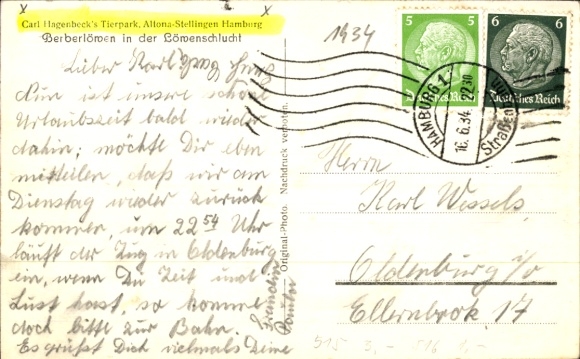 Carl Hagenbeck's Tierpark, Altona-Stellingen Hamburg
Berberlöwen in der Löwenschlucht
1934
5 5
Deutsches Reich
6 6
Deutsches Reich
HAMBURG 1
16.6.34. 22.30
Lieber Karl
Nun ist unsere schöne
Urlaubszeit bald wieder
dahin; möchte Dir eben
mitteilen, daß wir am
Dienstag wieder zurück
kommen, um 22 54 Uhr
läuft der Zug in Oldenburg
ein, wenn Du Zeit und
Lust hast, so komme
doch bitte zur Bahn.
Es grüßt Dich vielmals Deine
Freundin
Original-Photo. Nachdruck verboten.
Herrn
Karl Wessels
Oldenburg i/o
Ellernbrok 17